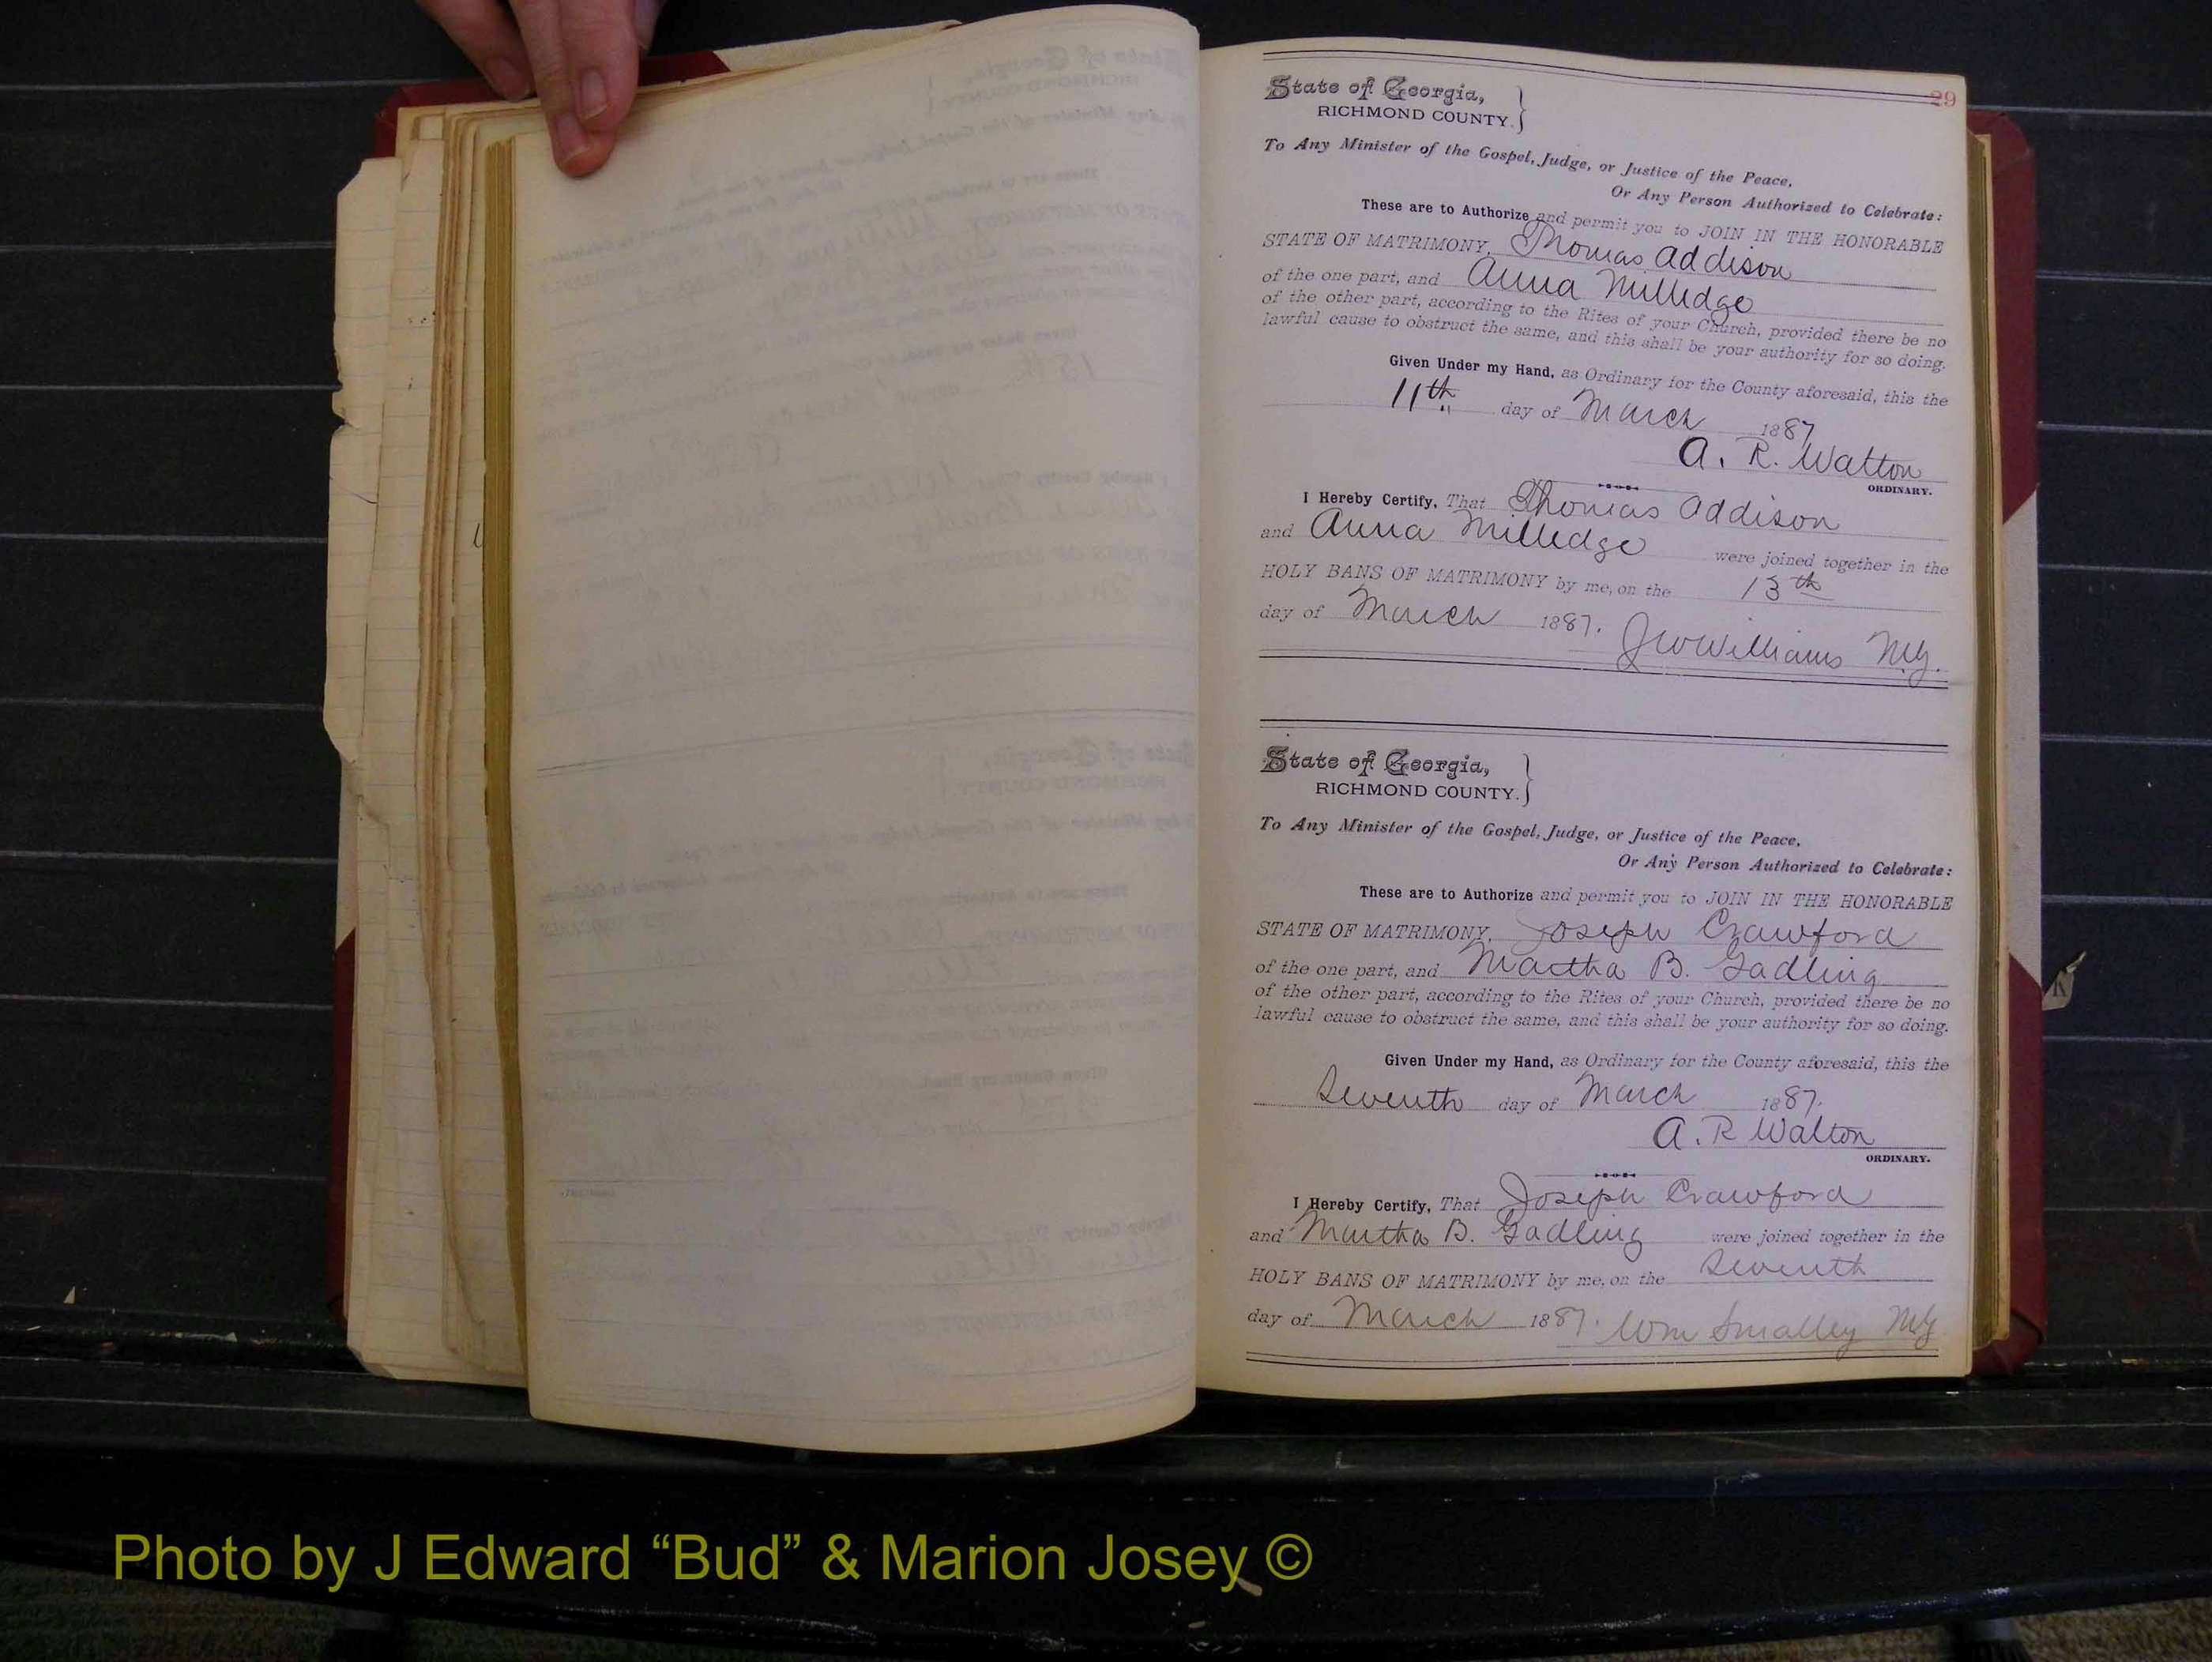 29
State of Georgia,
RICHMOND COUNTY. }
To Any Minister of the Gospel, Judge, or Justice of the Peace,
Or Any Person Authorized to Celebrate:
These are to Authorize and permit you to JOIN IN THE HONORABLE
STATE OF MATRIMONY, Thomas Addison
of the one part, and Anna Milledge
of the other part, according to the Rites of your Church, provided there be no
lawful cause to obstruct the same, and this shall be your authority for so doing.
Given Under my Hand, as Ordinary for the County aforesaid, this the
11th day of March 1887
A. R. Walton
ORDINARY.
I Hereby Certify, That Thomas Addison
and Anna Milledge were joined together in the
HOLY BANS OF MATRIMONY by me, on the 13th
day of March 1887. J W Williams M.G.
State of Georgia,
RICHMOND COUNTY. }
To Any Minister of the Gospel, Judge, or Justice of the Peace,
Or Any Person Authorized to Celebrate:
These are to Authorize and permit you to JOIN IN THE HONORABLE
STATE OF MATRIMONY, Joseph Crawford
of the one part, and Martha B. Gadling
of the other part, according to the Rites of your Church, provided there be no
lawful cause to obstruct the same, and this shall be your authority for so doing.
Given Under my Hand, as Ordinary for the County aforesaid, this the
Seventh day of March 1887.
A. R Walton
ORDINARY.
I Hereby Certify, That Joseph Crawford
and Martha B. Gadling were joined together in the
HOLY BANS OF MATRIMONY by me, on the Seventh
day of March 1887. Wm Smalley MG
K
Photo by J Edward “Bud” & Marion Josey ©